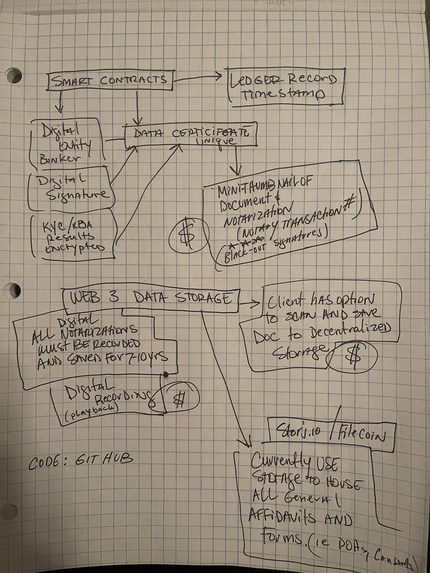 SMART CONTRACTS
LEDGER RECORD
TIMESTAMP
Digital
Entity
DATA CERTICIFOATE
UNIQUE
Digital
Signature
KYC/KBA
Results
Encrypted
MINITHUMBNAIL OF
Document &
NOTARIZATION
(NOTARY TRANSACTION #)
BLACK-OUT SIGNATURES)
$
WEB 3 DATA STORAGE
Client HAS OPTION
TO SCAN AND SAVE
DOC TO DECENTRALIZED
Storage
$
Digital
ALL NOTARIZATIONS
MUST BE RECORDED
AND SAVED FOR 7-10 YRS
Digital
RECORDING
(playback)
$
Storj.io / Filecoin
CODE: GIT HUB
Currently USE
STORAGE TO HOUSE
ALL General
AFFIDAVITS AND
FORMS. (ie POAs,